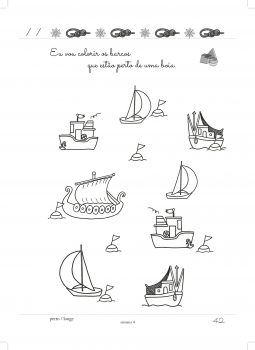 / /
Eu vou colorir os barcos
que estão perto de uma boia.
perto / longe
42